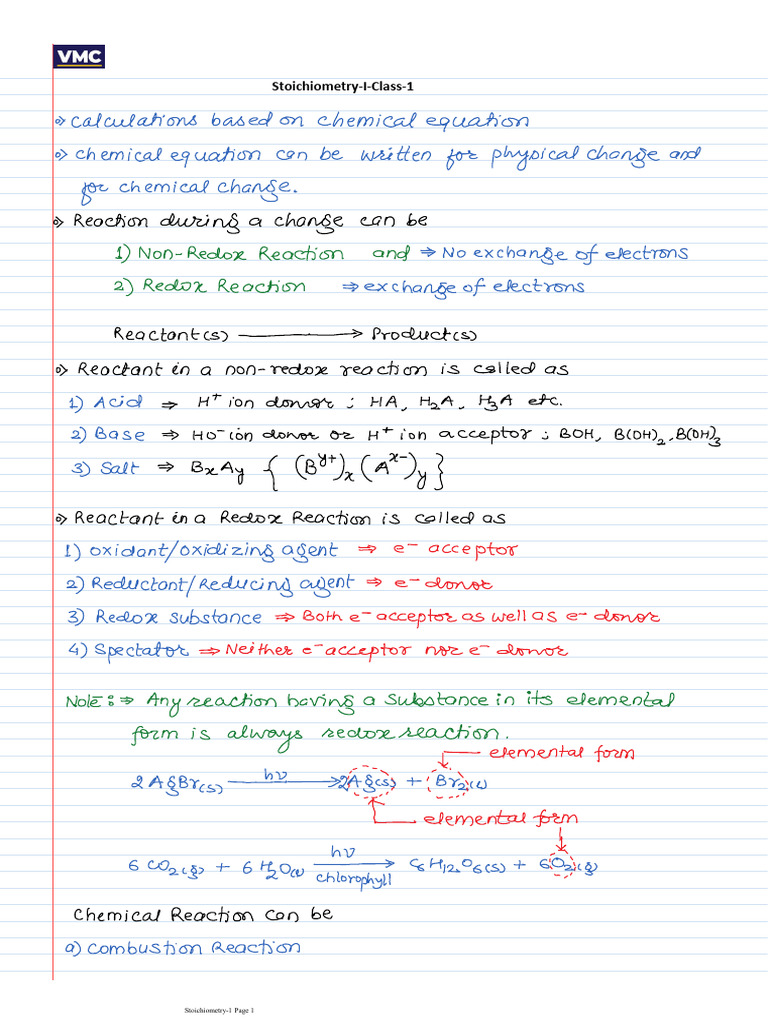 VMC
Stoichiometry-I-Class-1
⇒ Calculations based on chemical equation
⇒ chemical equation can be written for physical change and
for chemical change.
⇒ Reaction during a change can be
1) Non-Redox Reaction and ⇒ No exchange of electrons
2) Redox Reaction ⇒ exchange of electrons
Reactant(s) ⟶ Product(s)
⇒ Reactant in a non-redox reaction is called as
1) Acid ⇒ H⁺ ion donor ; HA, H₂A, H₃A etc.
2) Base ⇒ HO⁻ ion donor or H⁺ ion acceptor ; BOH, B(OH)₂, B(OH)₃
3) Salt ⇒ BₓAᵧ { (B^y+)ₓ (A^x-)ᵧ }
⇒ Reactant in a Redox Reaction is called as
1) oxidant/oxidizing agent ⇒ e⁻ acceptor
2) Reductant/Reducing agent ⇒ e⁻ donor
3) Redox substance ⇒ Both e⁻ acceptor as well as e⁻ donor
4) Spectator ⇒ Neither e⁻ acceptor nor e⁻ donor
Note : ⇒ Any reaction having a substance in its elemental
form is always redox reaction.
elemental form
2AgBr(s) ⟶ hν 2Ag(s) + Br₂(l)
elemental form
6 CO₂(g) + 6 H₂O(l) ⟶ hν chlorophyll C₆H₁₂O₆(s) + 6O₂(g)
Chemical Reaction can be
a) Combustion Reaction
Stoichiometry-1 Page 1